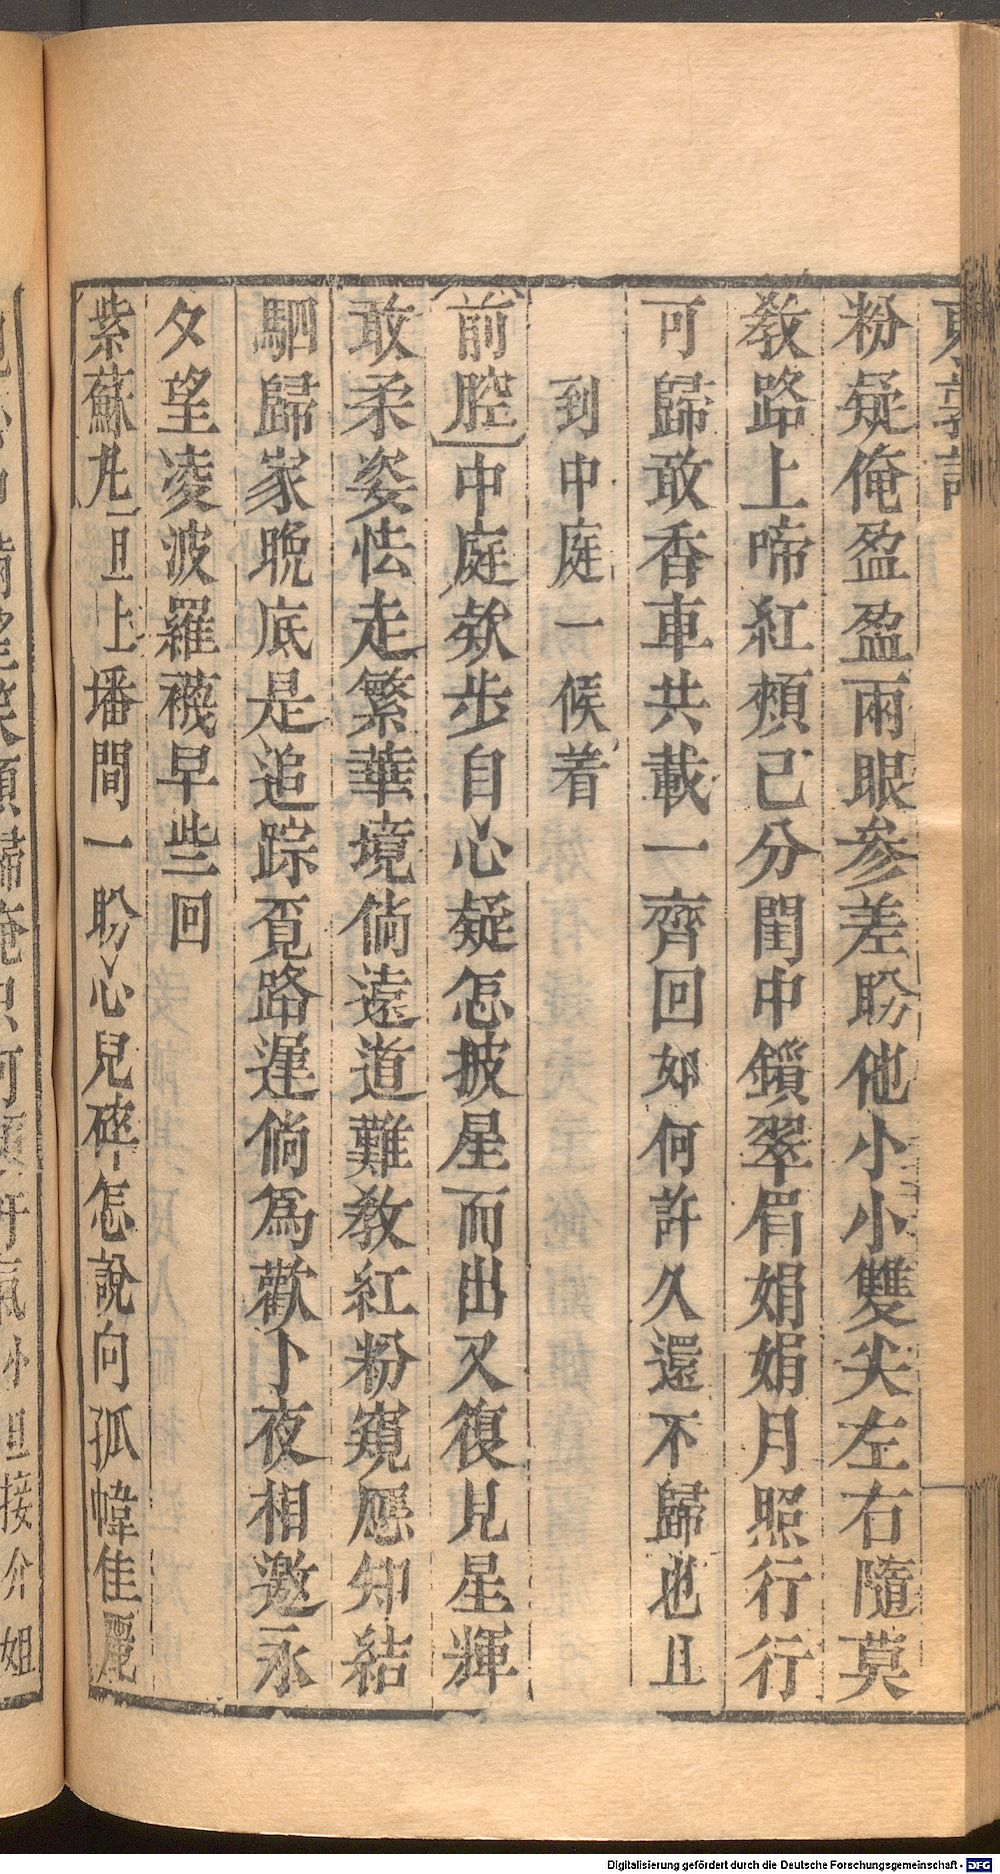 東郭記
粉疑俺盈盈兩眼參差盼他小小雙尖左右隨莫
教路上啼紅頰已分閨中鎖翠眉娟娟月照行行
可歸敢香車共載一齊回如何許久還不歸也且
到中庭一候着
前腔中庭欸步自心疑怎披星而出又復見星輝
敢柔姿怯走繁華境倘遠道難教紅粉窺應知結
駟歸家晚底是追踪覓路遲倘爲歡卜夜相邀永
夕望凌波羅襪早些回
紫蘇丸旦上墦間一盼心兒碎怎說向孤幃佳麗
Digitalisierung gefördert durch die Deutsche Forschungsgemeinschaft - DFG